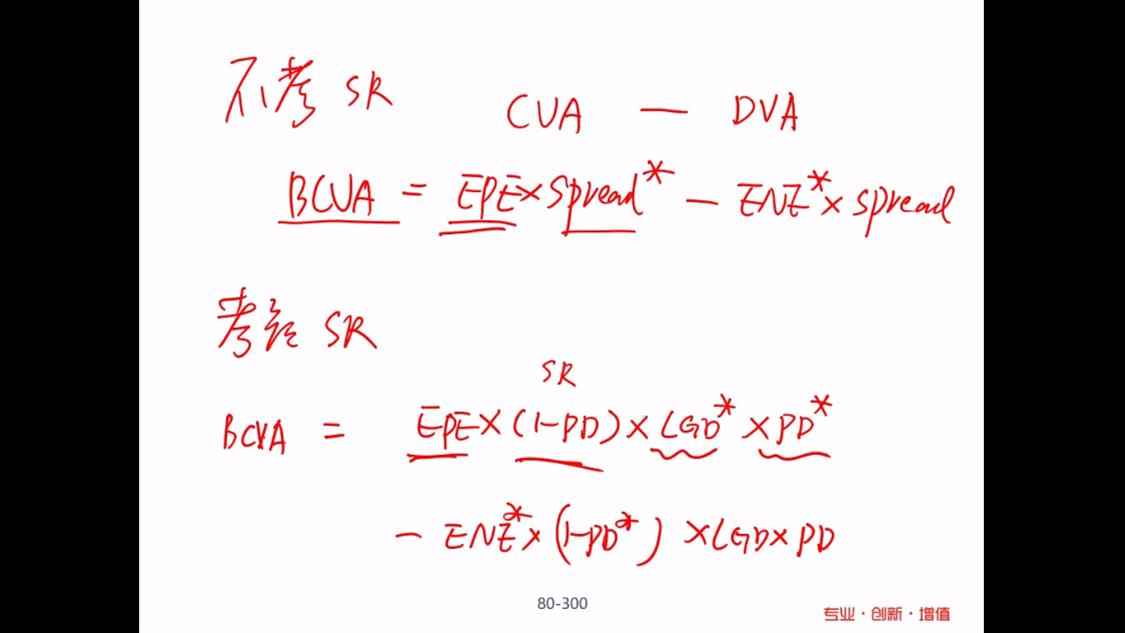 不考 SR
CVA — DVA
BCVA = EPE × Spread* — ENE* × Spread
考虑 SR
SR
BCVA = EPE × (1-PD) × LGD* × PD*
— ENE* × (1-PD*) × LGD × PD
80-300
专业·创新·增值